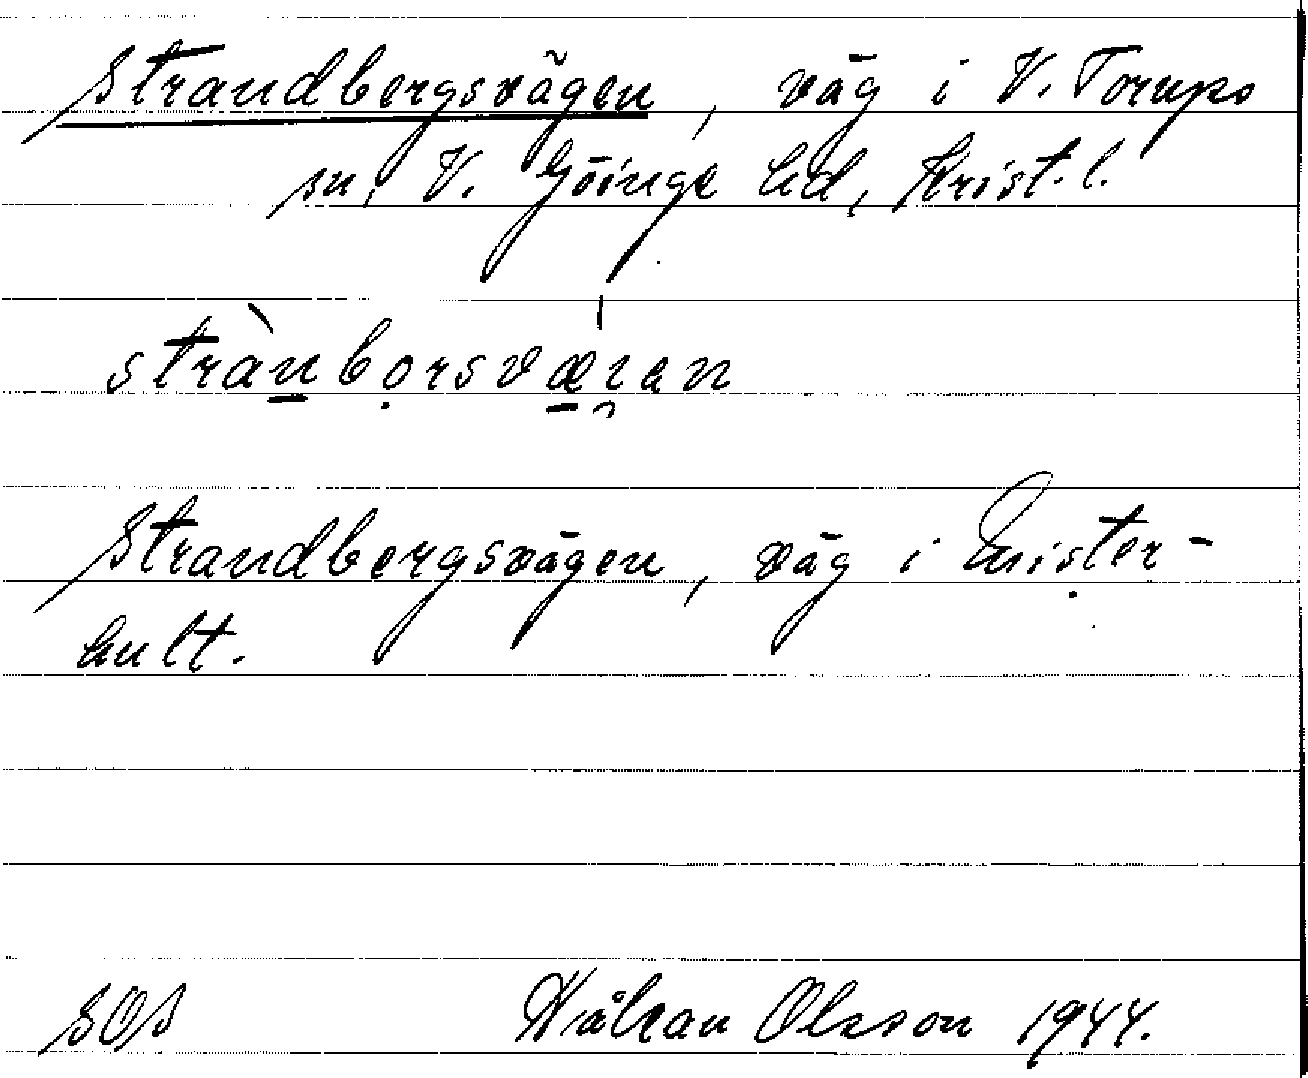 Strandbergsvägen, väg i V. Torups
sn, V. Göinge hd, Krist. l.
strànborsværan
Strandbergsvägen, väg i Emister-
hult.
SOS Håkan Olsson 1944.